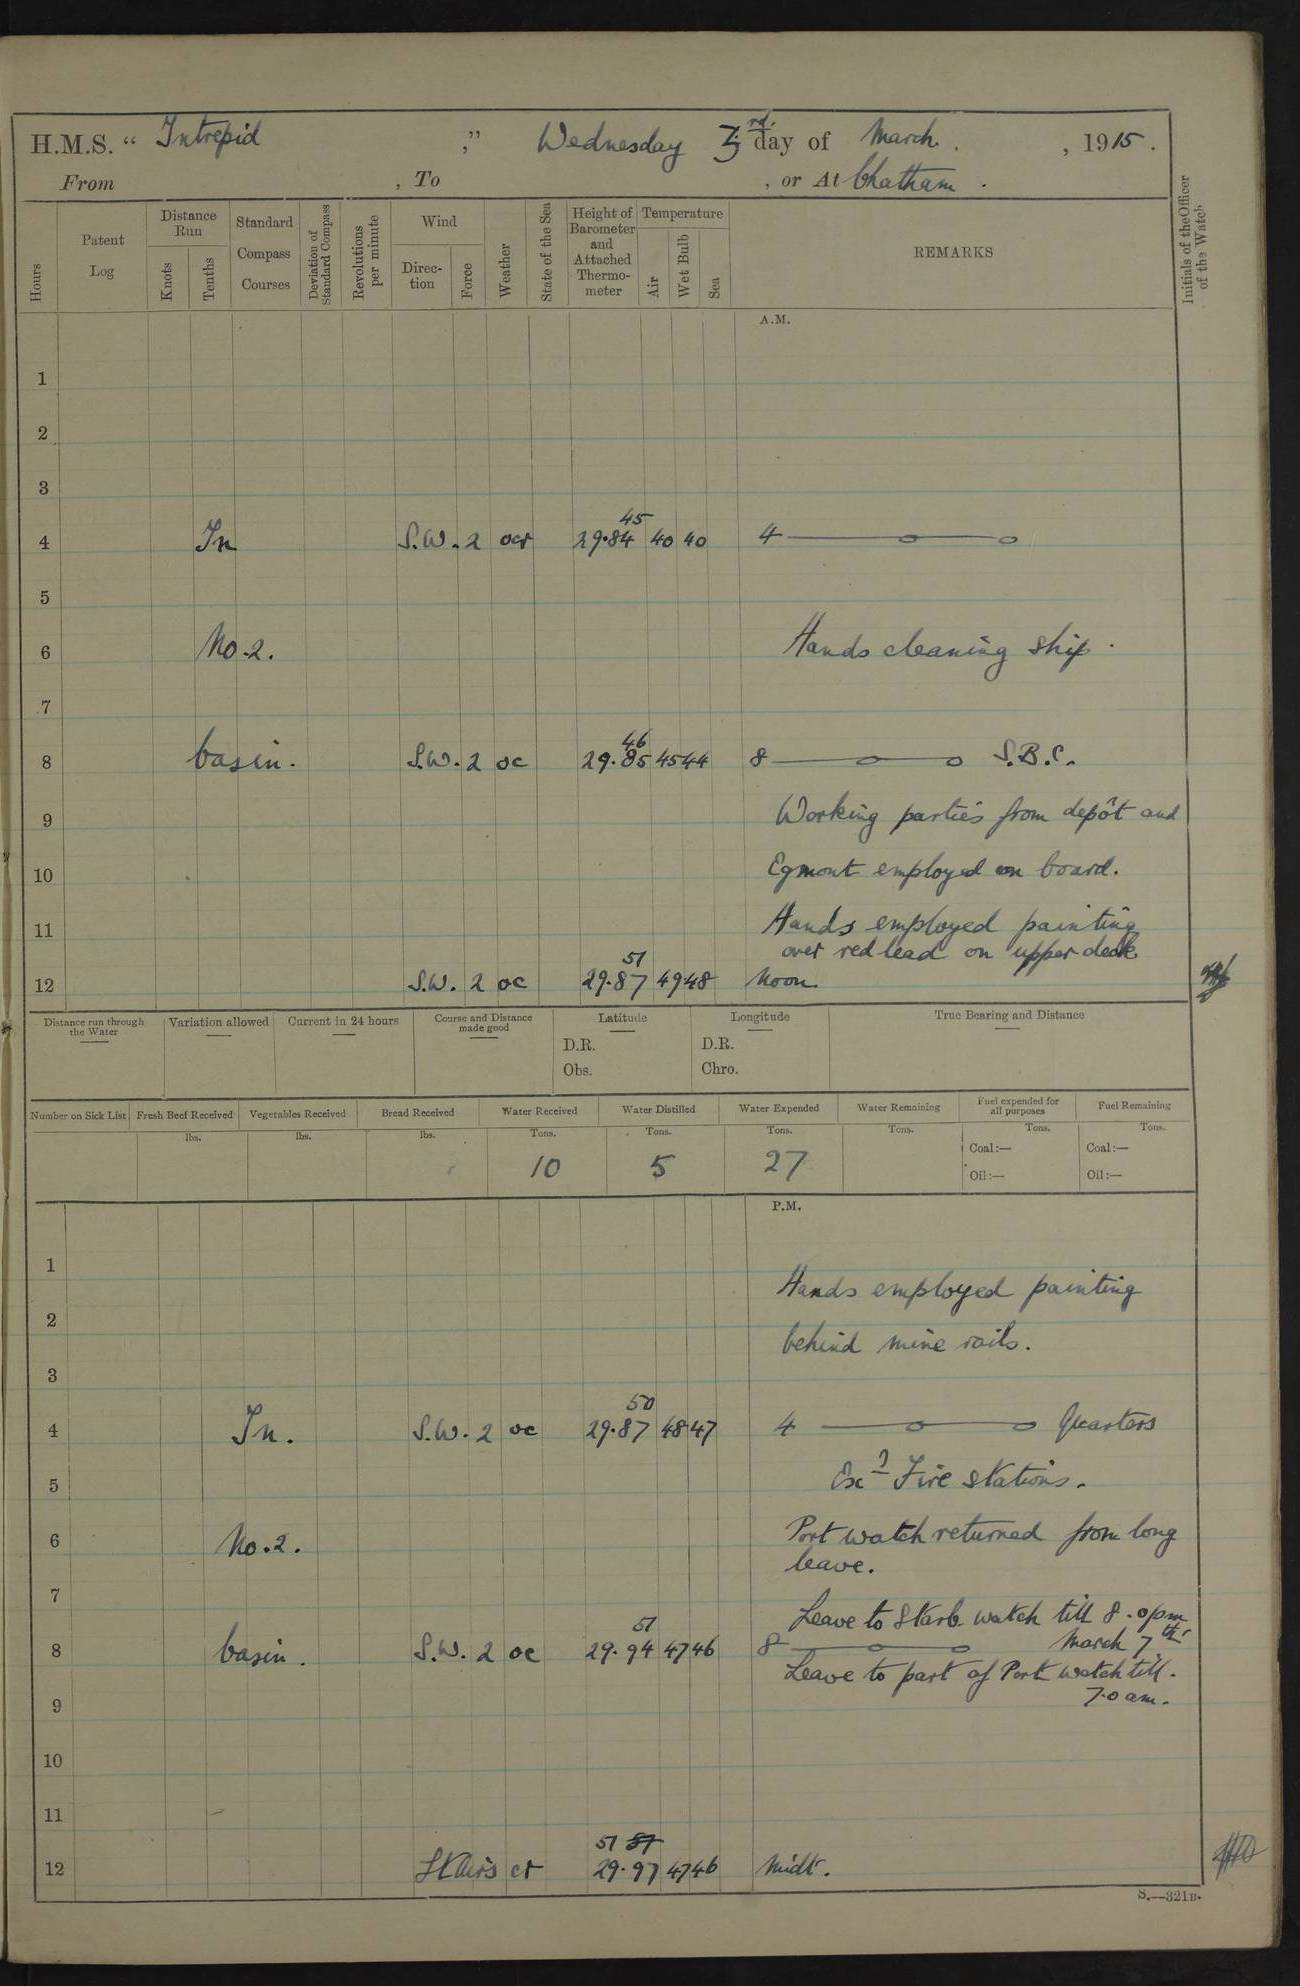 H.M.S. “ Intrepid ,” Wednesday 3rd. day of March. , 1915.
From , To , or At Chatham.
Hours
Patent Log
Distance Run
Knots
Tenths
Standard Compass Courses
Deviation of Standard Compass
Revolutions per minute
Wind
Direction
Force
Weather
State of the Sea
Height of Barometer and Attached Thermometer
Temperature
Air
Wet Bulb
Sea
REMARKS
Initials of the Officer of the Watch
A.M.
1
2
3
45
4 In S.W. 2 ocr 29.84 40 40 4
5
6 No. 2. Hands cleaning ship.
7
46
8 basin. S.W. 2 oc 29.85 45 44 8 S.B.S.
9 Working parties from depôt and
10 Egmont employed on board.
11 Hands employed painting
over red lead on upper deck
51
12 S.W. 2 oc 29.87 49 48 Noon
Distance run through the Water
Variation allowed
Current in 24 hours
Course and Distance made good
Latitude
D.R.
Obs.
Longitude
D.R.
Chro.
True Bearing and Distance
Number on Sick List
Fresh Beef Received
lbs.
Vegetables Received
lbs.
Bread Received
lbs.
Water Received
Tons.
10
Water Distilled
Tons.
5
Water Expended
Tons.
27
Water Remaining
Tons.
Fuel expended for all purposes
Tons.
Coal:—
Oil:—
Fuel Remaining
Tons.
Coal:—
Oil:—
P.M.
1
Hands employed painting
2
behind mine rails.
3
50
4 In. S.W. 2 oc 29.87 48 47 4 Quarters
5 Exd Fire stations.
6 No. 2. Port watch returned from long
leave.
7
Leave to Starb. watch till 8.0pm
51
8 basin. S.W. 2 oc 29.94 47 46 8 March 7th
Leave to part of Port watch till.
7.0 am.
9
10
11
51
12 Lt Airs cr 29.97 47 46 Midt.
S.—321B.